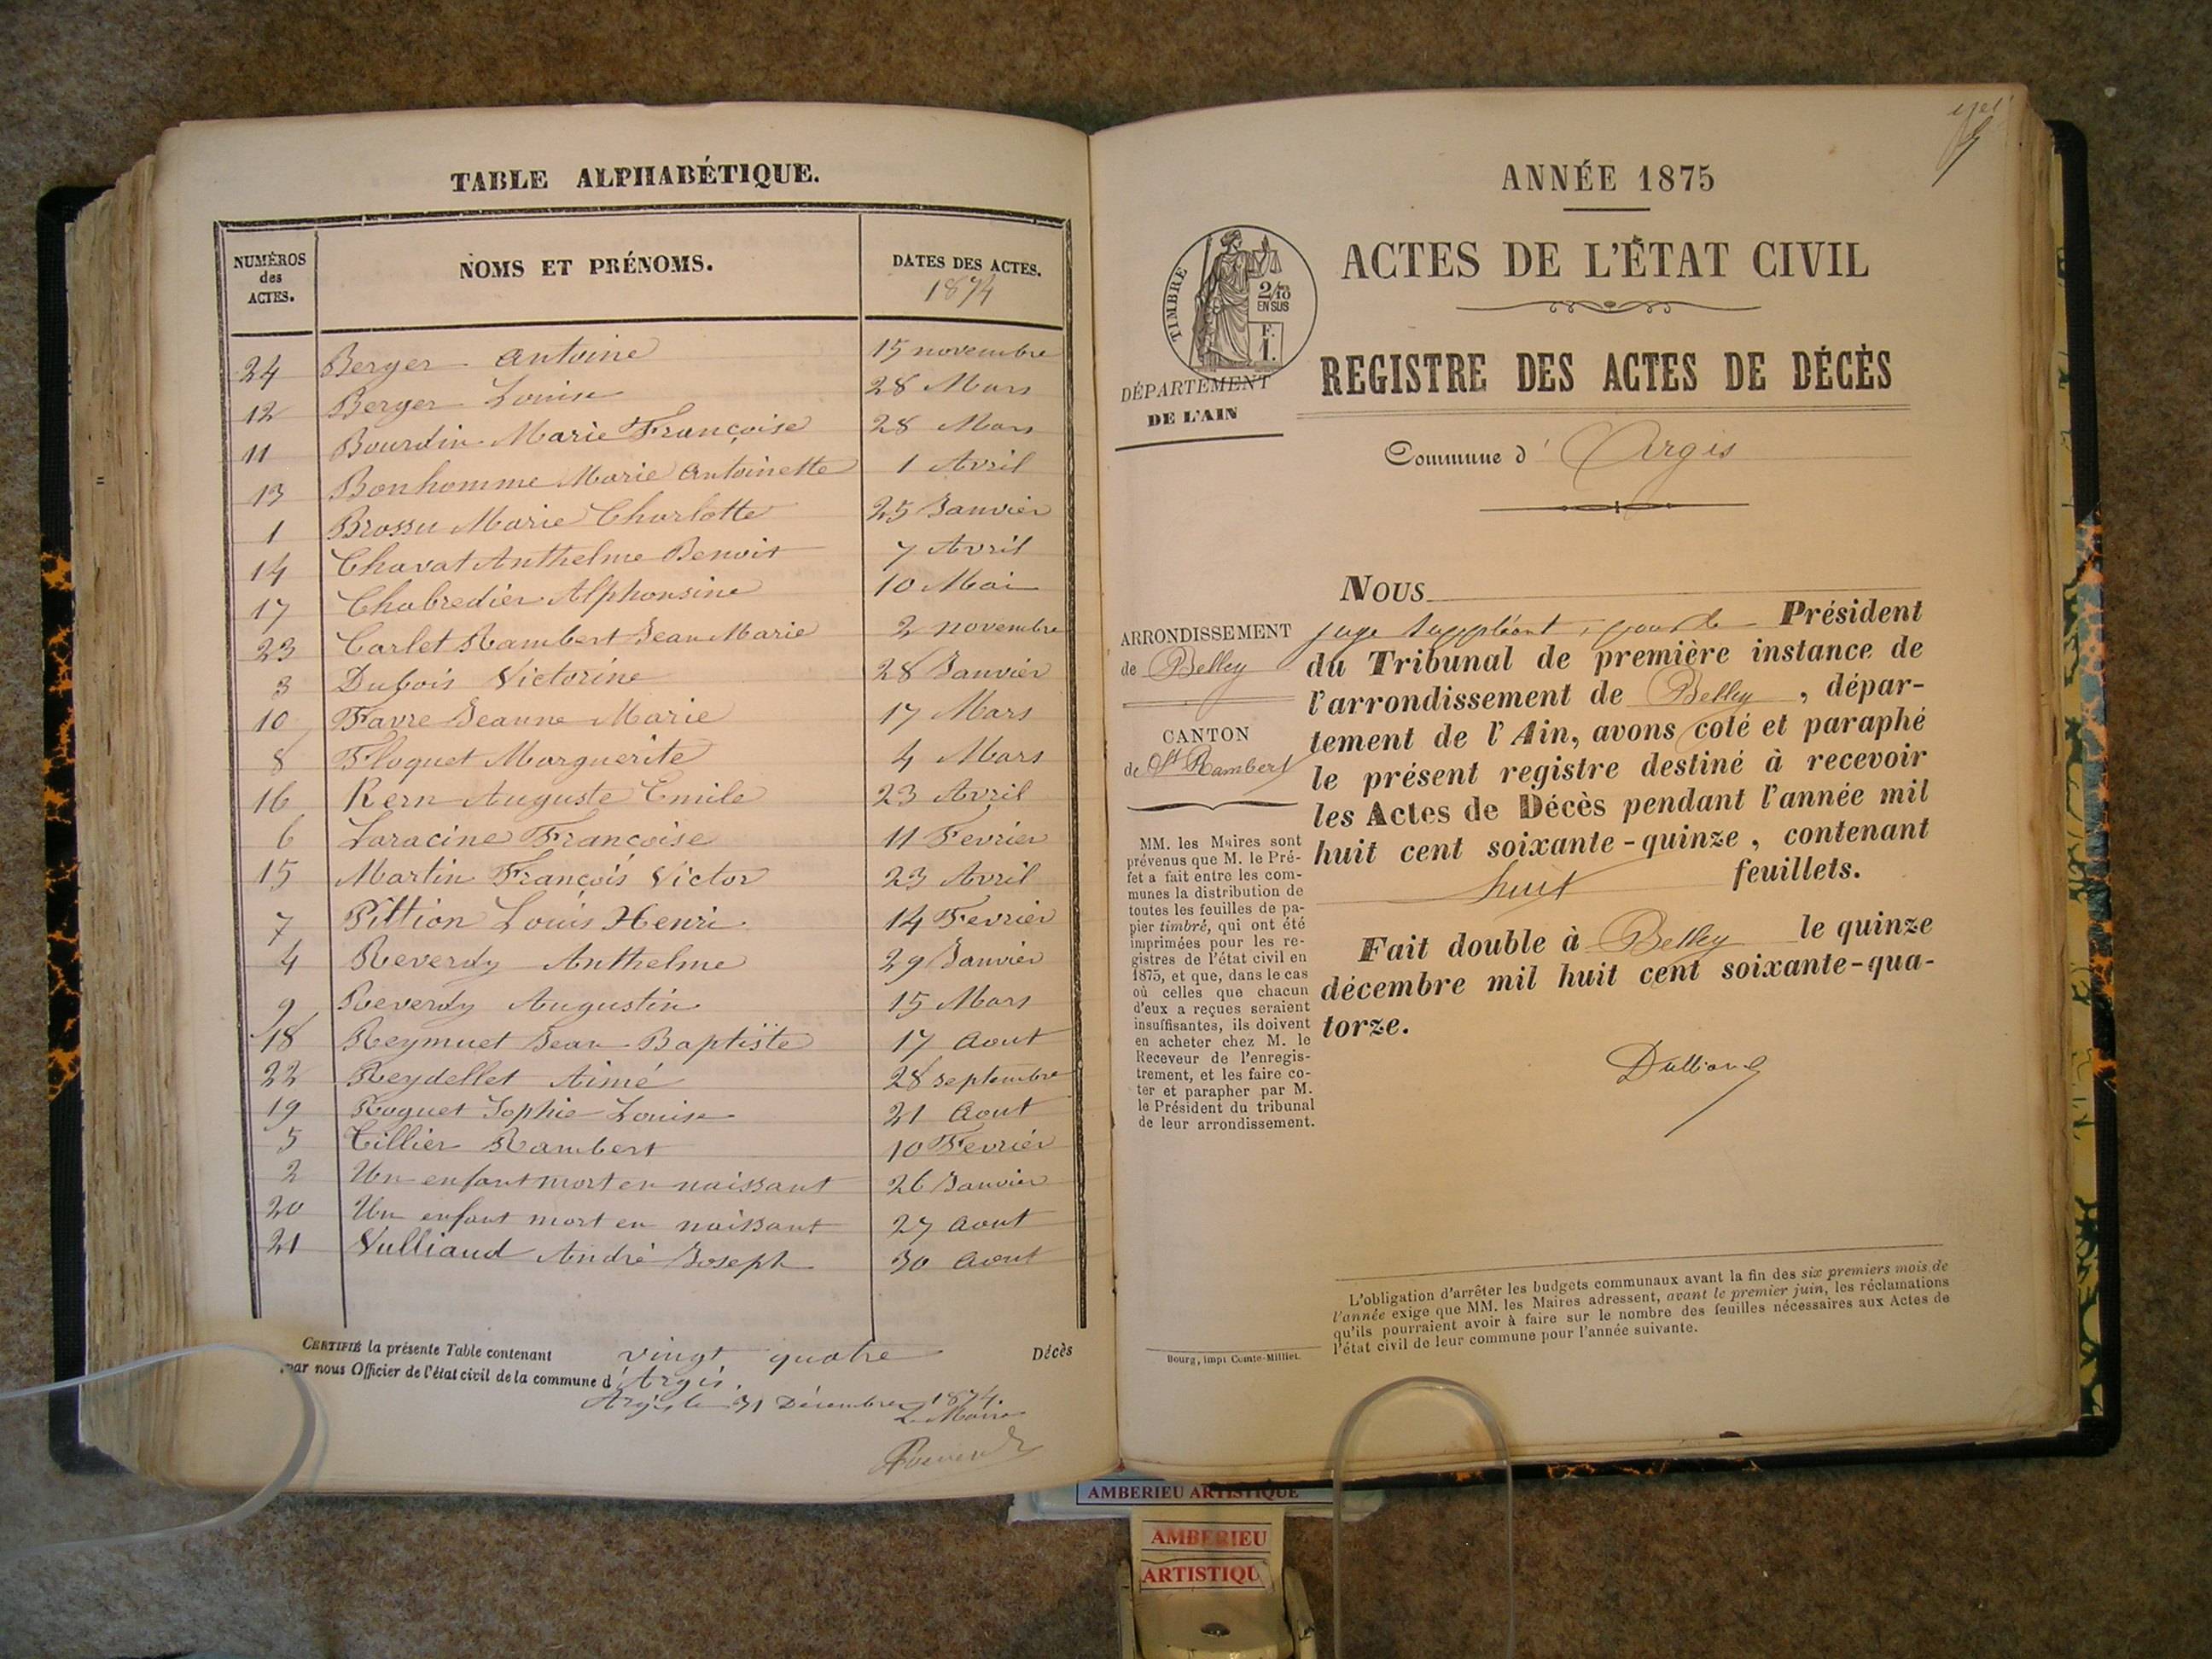 TABLE ALPHABÉTIQUE.
NUMÉROS des ACTES.
NOMS ET PRÉNOMS.
DATES DES ACTES.
1874
24 Berger Antoine 15 novembre
12 Berger Louise 28 Mars
11 Bourdin Marie Françoise 28 Mars
13 Bonhomme Marie Antoinette 1 Avril
1 Brossu Marie Charlotte 25 Janvier
14 Chavat Anthelme Benoit 7 Avril
17 Chabredier Alphonsine 10 Mai
23 Carlet Rambert Jean Marie 2 novembre
3 Dubois Victorine 28 Janvier
10 Favre Jeanne Marie 17 Mars
8 Floquet Marguerite 4 Mars
16 Kern Auguste Emile 23 Avril
6 Laracine Françoise 11 Fevrier
15 Martin François Victor 23 Avril
7 Pittion Louis Henri 14 Fevrier
4 Reverdy Anthelme 29 Janvier
9 Reverdy Augustin 15 Mars
18 Reymuet Jean Baptiste 17 Aout
22 Reydellet Aimé 28 septembre
19 Roguet Sophie Louise 21 Aout
5 Tillier Rambert 10 Fevrier
2 Un enfant mort en naissant 26 Janvier
20 Un enfant mort en naissant 27 Aout
21 Vulliaud André Joseph 30 Aout
CERTIFIÉ la présente Table contenant vingt quatre Décès
par nous Officier de l'état civil de la commune d'Argis.
Argis le 31 Décembre 1874.
Le Maire
ANNÉE 1875
ACTES DE L'ÉTAT CIVIL
TIMBRE
2/10
EN SUS
F.
1.
DÉPARTEMENT
DE L'AIN
REGISTRE DES ACTES DE DÉCÈS
Commune d'Argis
ARRONDISSEMENT
de Belley
CANTON
de St Rambert
MM. les Maires sont
prévenus que M. le Pré-
fet a fait entre les com-
munes la distribution de
toutes les feuilles de pa-
pier timbré, qui ont été
imprimées pour les re-
gistres de l'état civil en
1875, et que, dans le cas
où celles que chacun
d'eux a reçues seraient
insuffisantes, ils doivent
en acheter chez M. le
Receveur de l'enregis-
trement, et les faire co-
ter et parapher par M.
le Président du tribunal
de leur arrondissement.
NOUS
juge suppléant, pour le Président
du Tribunal de première instance de
l'arrondissement de Belley, dépar-
tement de l'Ain, avons coté et paraphé
le présent registre destiné à recevoir
les Actes de Décès pendant l'année mil
huit cent soixante-quinze, contenant
huit feuillets.
Fait double à Belley le quinze
décembre mil huit cent soixante-qua-
torze.
L'obligation d'arrêter les budgets communaux avant la fin des six premiers mois de
l'année exige que MM. les Maires adressent, avant le premier juin, les réclamations
qu'ils pourraient avoir à faire sur le nombre des feuilles nécessaires aux Actes de
l'état civil de leur commune pour l'année suivante.
Bourg, impr Comte-Milliet.
AMBERIEU ARTISTIQUE
AMBERIEU
ARTISTIQU